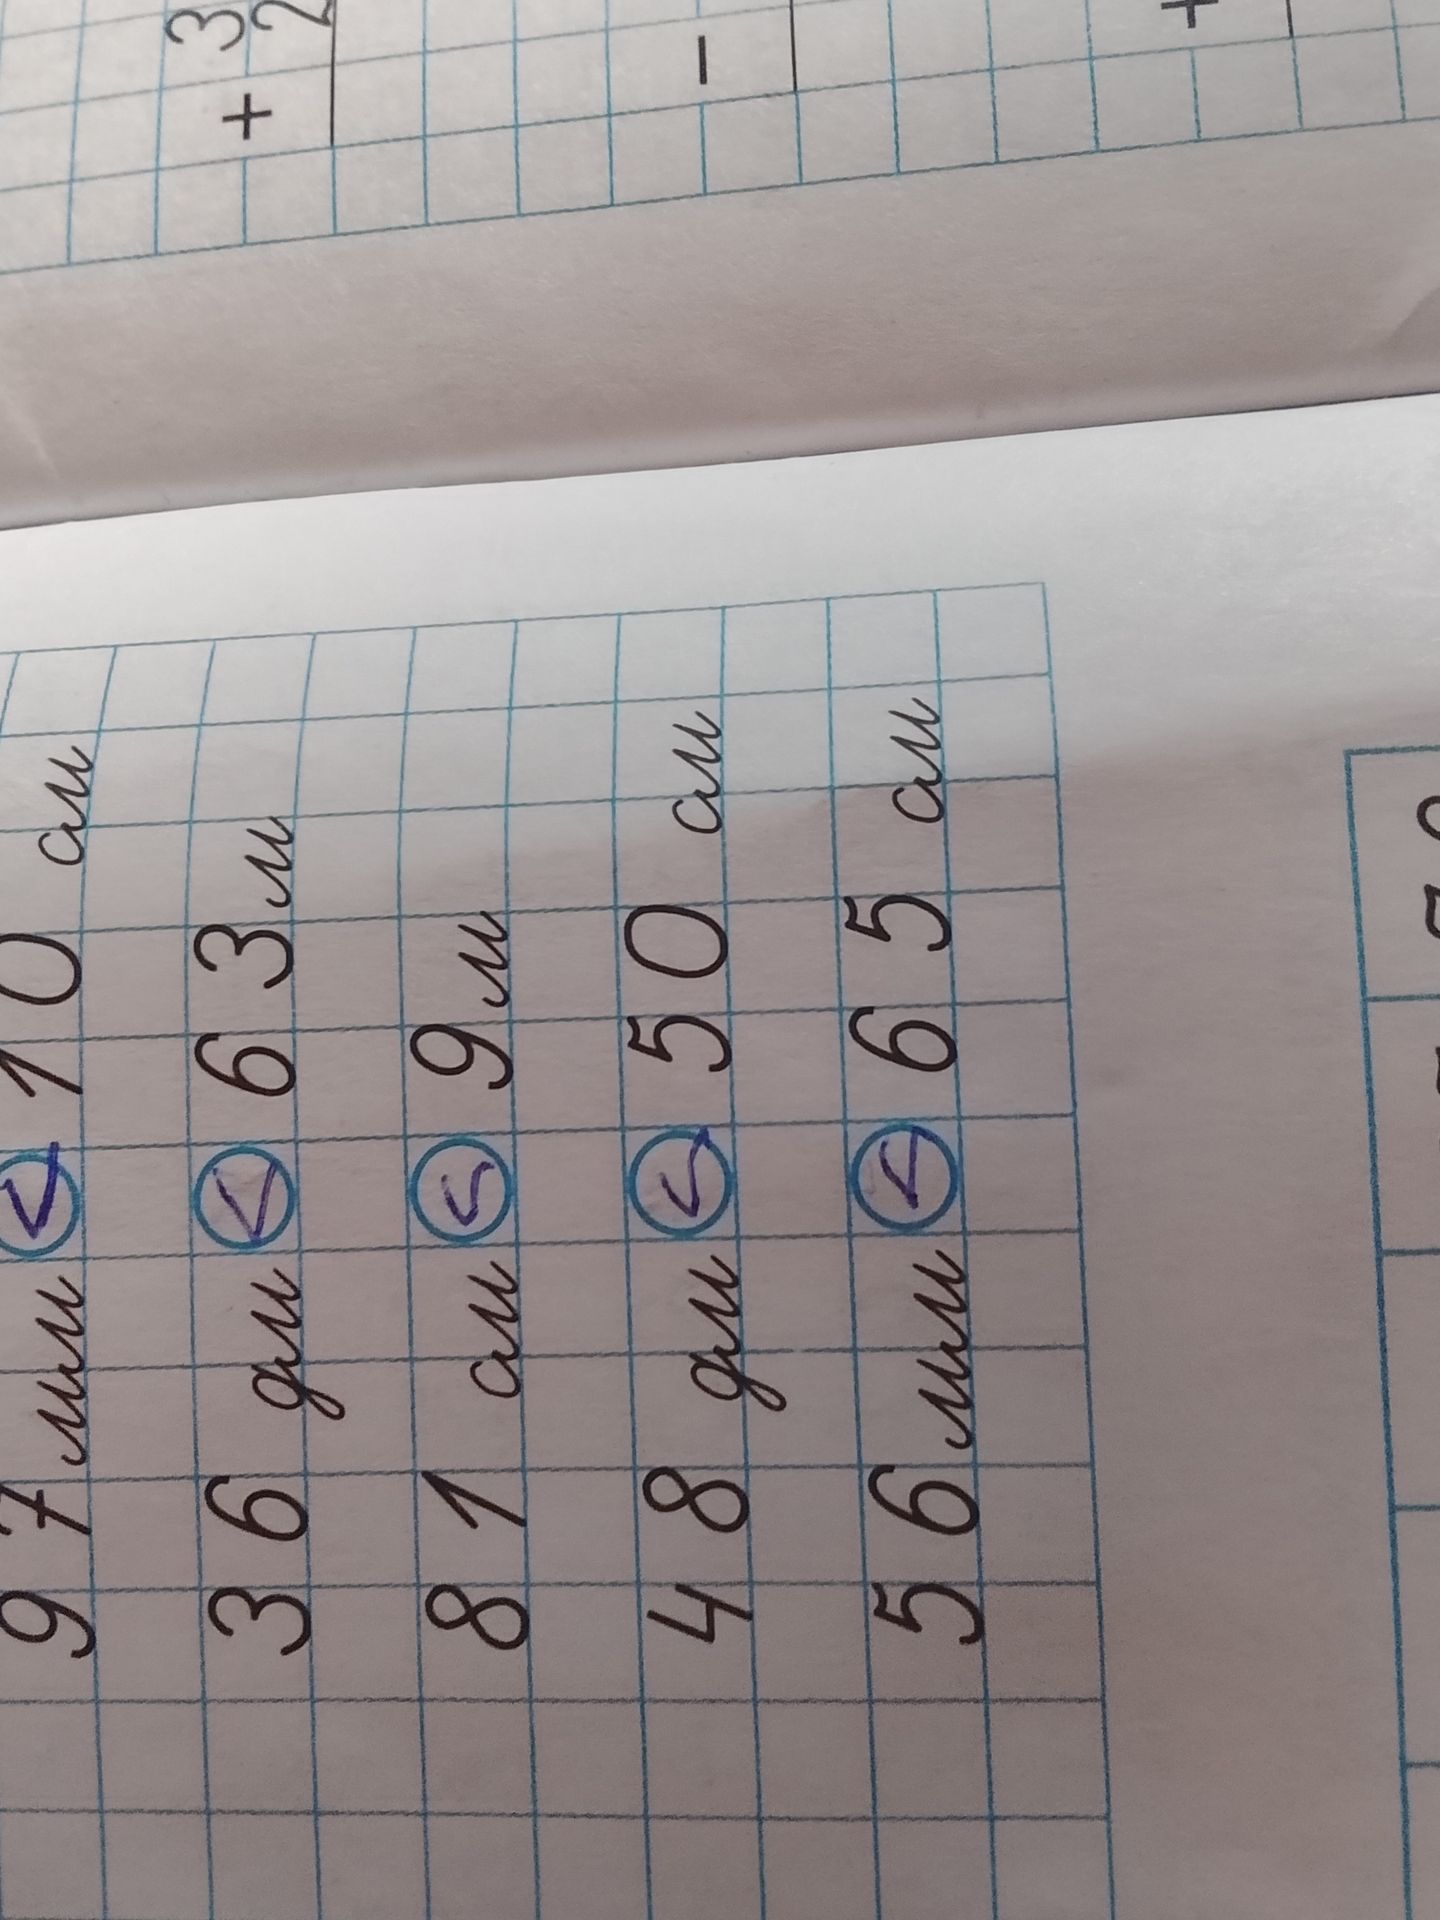 97 мм < 10 см
36 дм < 63 м
81 см < 9 м
48 дм < 50 см
56 мм < 65 см
3
+
2
−
+